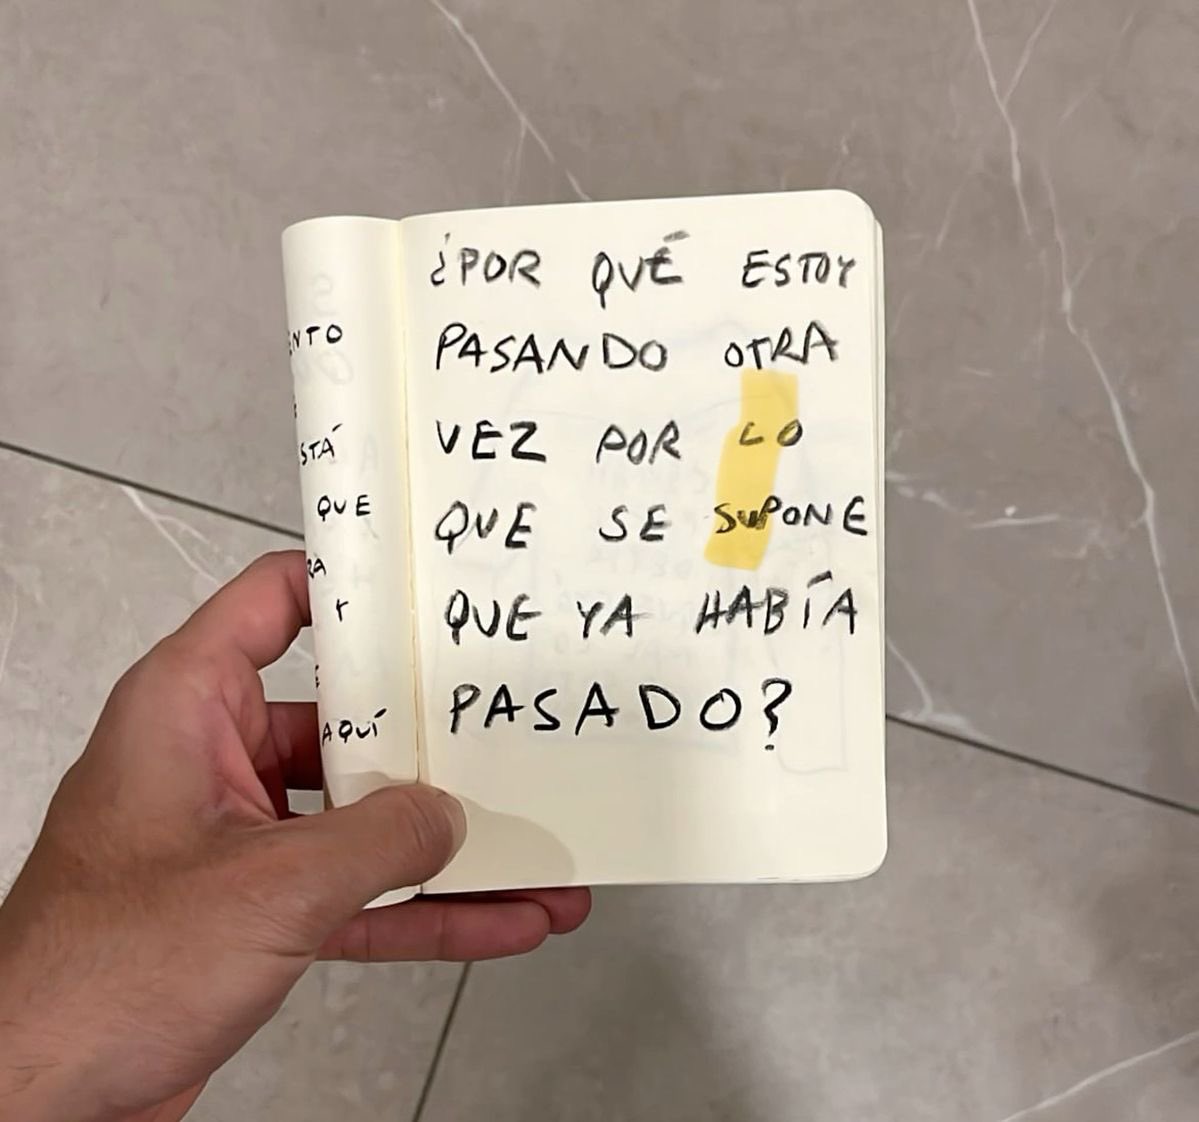 ENTO
STÁ
QUE
RA
Y
E
AQUÍ
¿POR QUÉ ESTOY
PASANDO OTRA
VEZ POR LO
QUE SE SUPONE
QUE YA HABÍA
PASADO?